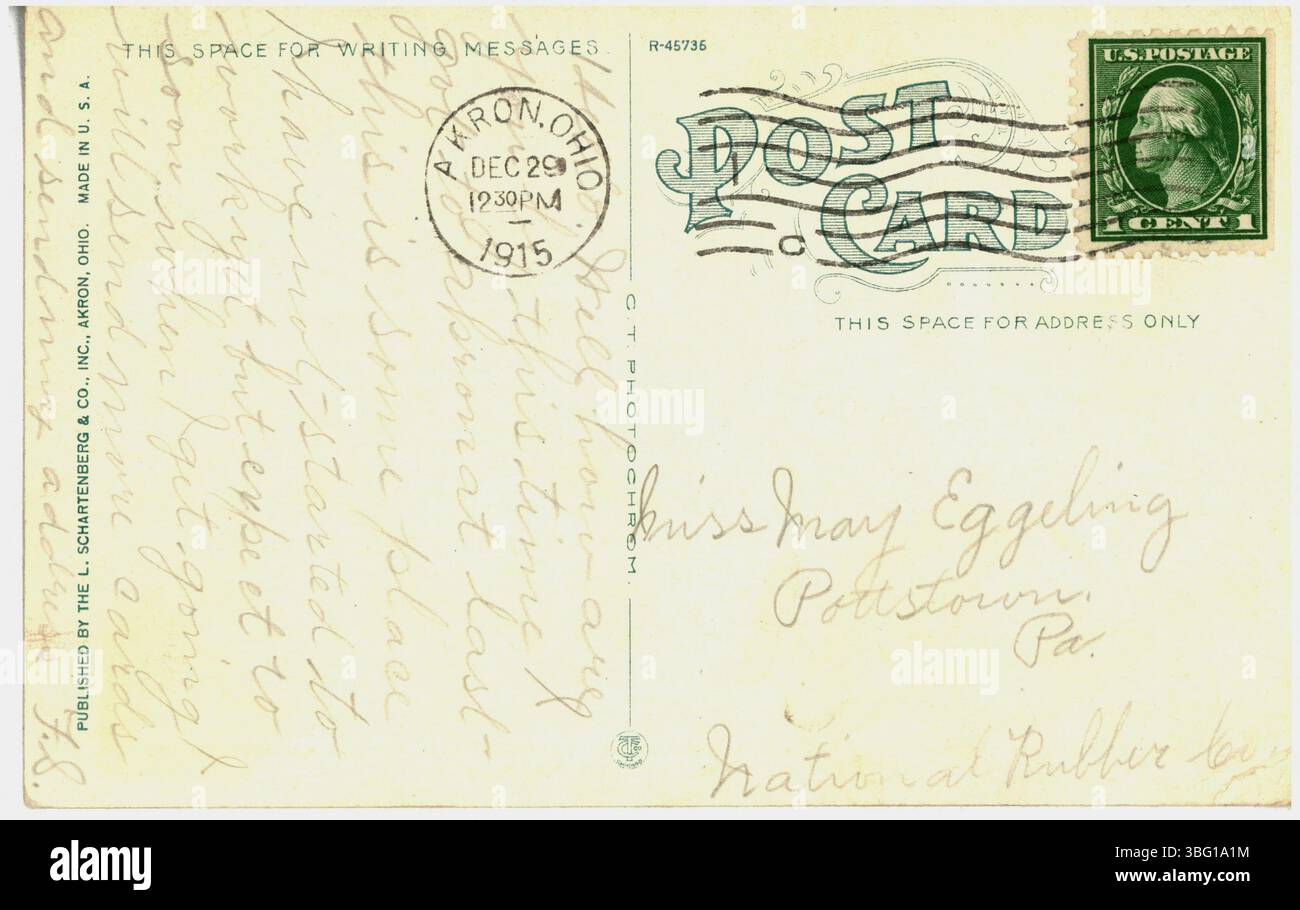 THIS SPACE FOR WRITING MESSAGES
R-45736
POST CARD
THIS SPACE FOR ADDRESS ONLY
U.S. POSTAGE
1 CENT 1
AKRON, OHIO
DEC 29
12 30 PM
1915
C
Hello Well how are
you this time I
got to Akron at last-
this is some place
I have not started to
work yet but expect to
soon when I get going I
will send more cards
and send my address F.S.
Miss May Eggeling
Pottstown.
Pa.
National Rubber Co
C. T. PHOTOCHROM
PUBLISHED BY THE L. SCHARTENBERG & CO., INC., AKRON, OHIO. MADE IN U. S. A.
alamy
Image ID: 3BG1A1M
www.alamy.com